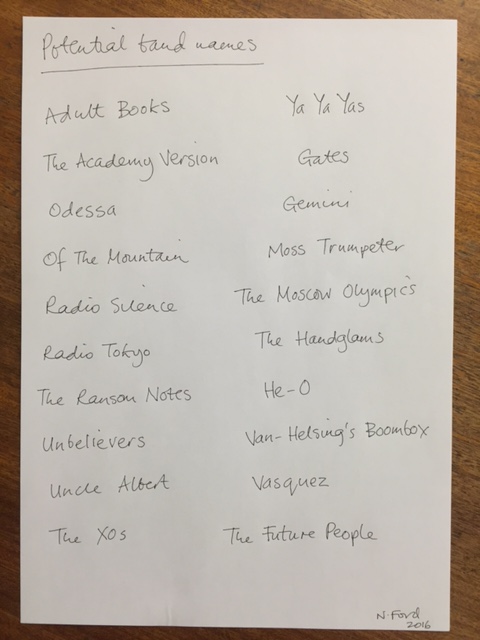 Potential band names
Adult Books
The Academy Version
Odessa
Of The Mountain
Radio Silence
Radio Tokyo
The Ransom Notes
Unbelievers
Uncle Albert
The XOs
Ya Ya Yas
Gates
Gemini
Moss Trumpeter
The Moscow Olympics
The Handglams
He-O
Van-Helsing's Boombox
Vasquez
The Future People
N. Ford
2016